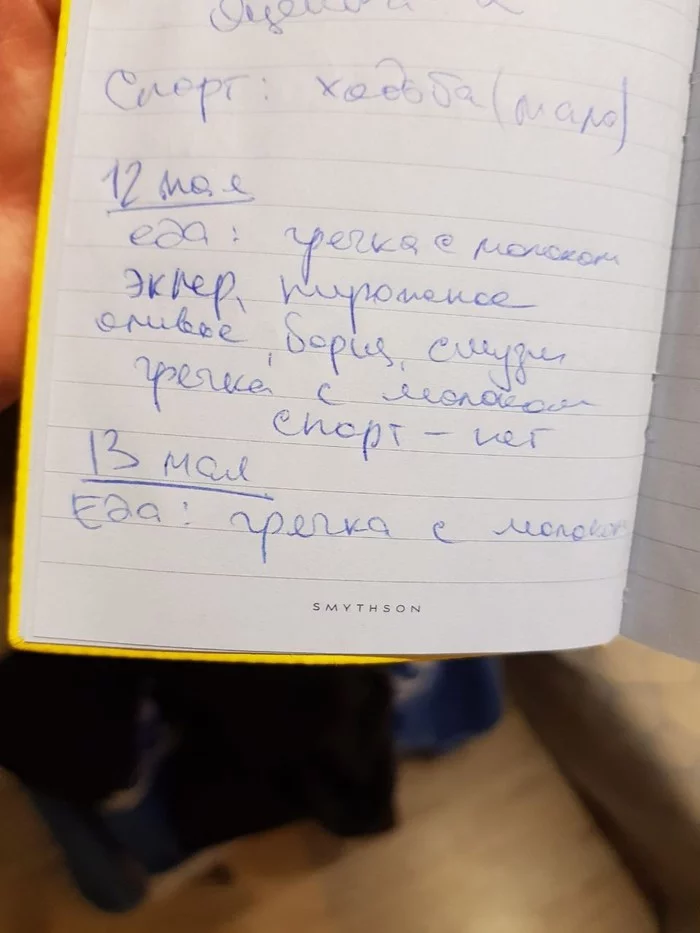 Спорт: ходьба (мало)
12 мая
еда: гречка с молоком
эклер, пирожное
оливье, борщ, смузи
гречка с молоком
спорт – нет
13 мая
Еда: гречка с молоком
SMYTHSON